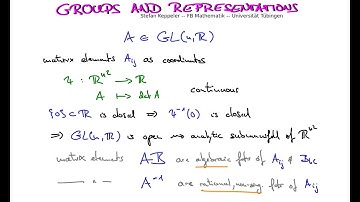 GROUPS AND REPRESENTATIONS
Stefan Keppeler -- FB Mathematik -- Universität Tübingen
A ∈ GL(n,ℝ)
matrix elements A_ij as coordinates
Ψ : ℝ^{n²} → ℝ
A ↦ det A continuous
{0} ⊂ ℝ is closed ⇒ Ψ^{-1}(0) is closed
⇒ GL(n,ℝ) is open → analytic submanifold of ℝ^{n²}
matrix elements A·B are algebraic fcts of A_ij & B_kl
—— " — A^{-1} are rational, non-sing. fcts of A_ij